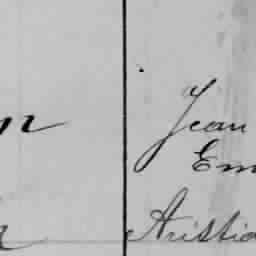 n Jean
Em
Aristid